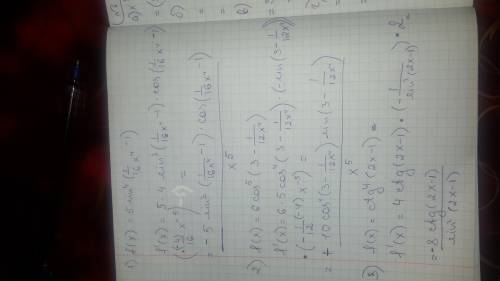 1) f(x) = 5 sin⁴ (1/16 x⁻⁴ - 1)
f'(x) = 5 · 4 sin³ (1/16 x⁻⁴ - 1) · cos (1/16 x⁻⁴ - 1)
(-4/16 x⁻⁵) =
= - 5 sin³ (1/16 x⁻⁴ - 1) · cos (1/16 x⁻⁴ - 1)
x⁵
2) f(x) = 6 cos⁵ (3 - 1/12x⁴)
f'(x) = 6 · 5 cos⁴ (3 - 1/12x⁴) (- sin (3 - 1/12x⁴))
· (- 1/12 (-4) x⁻⁵) =
= + 10 cos⁴ (3 - 1/12x⁴) sin (3 - 1/12x⁴)
x⁵
3) f(x) = ctg⁴ (2x-1) =
f'(x) = 4 ctg (2x-1) · (- 1/sin² (2x-1)) · 2 =
= - 8 ctg (2x-1)
sin² (2x-1)